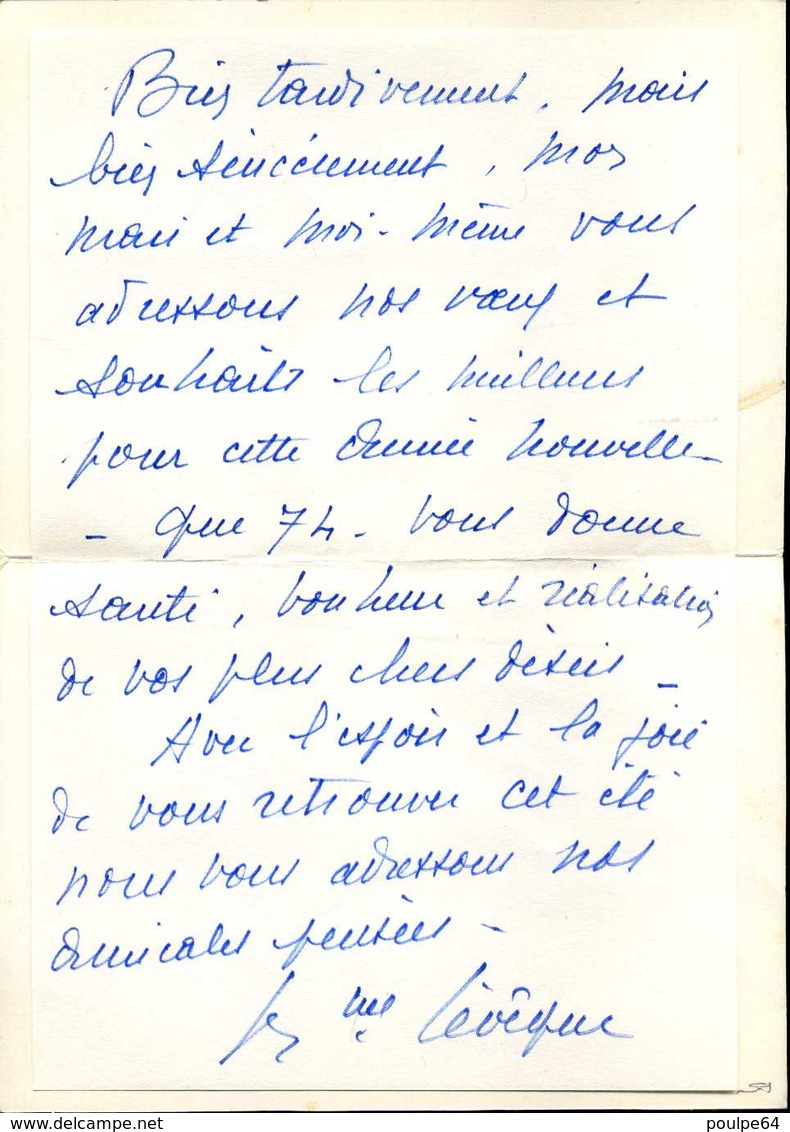 Bien tardivement, mais
bien sincèrement, mon
mari et moi-même vous
adressons nos vœux et
souhaits les meilleurs
pour cette année nouvelle -
- Que 74 - vous donne
santé, bonheur et réalisation
de vos plus chers désirs -
Avec l'espoir et la joie
de vous retrouver cet été
nous vous adressons nos
amicales pensées -
Lévêque
poulpe64